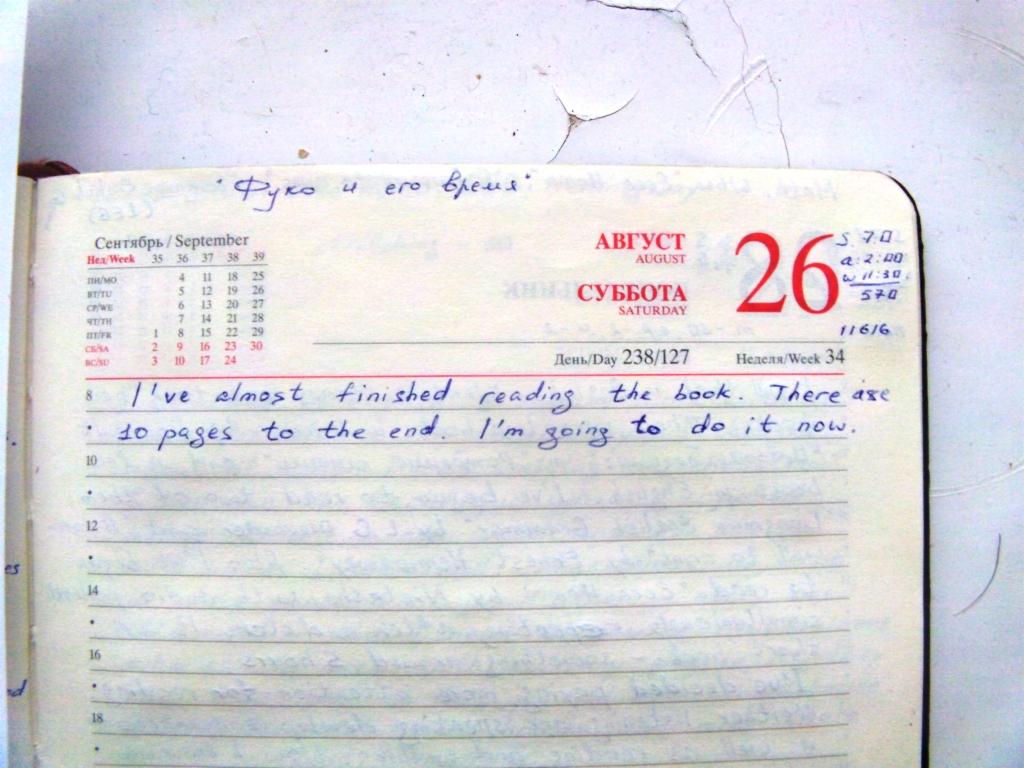 "Фуко и его время"
Сентябрь / September
Нед/Week 35 36 37 38 39
ПН/MO 4 11 18 25
ВТ/TU 5 12 19 26
СР/WE 6 13 20 27
ЧТ/TH 7 14 21 28
ПТ/FR 1 8 15 22 29
СБ/SA 2 9 16 23 30
ВС/SU 3 10 17 24
АВГУСТ
AUGUST
СУББОТА
SATURDAY
26
S 7:0
a 2:00
w 11:30
570
11616
День/Day 238/127
Неделя/Week 34
8 I've almost finished reading the book. There are
10 pages to the end. I'm going to do it now.
10
12
14
16
18